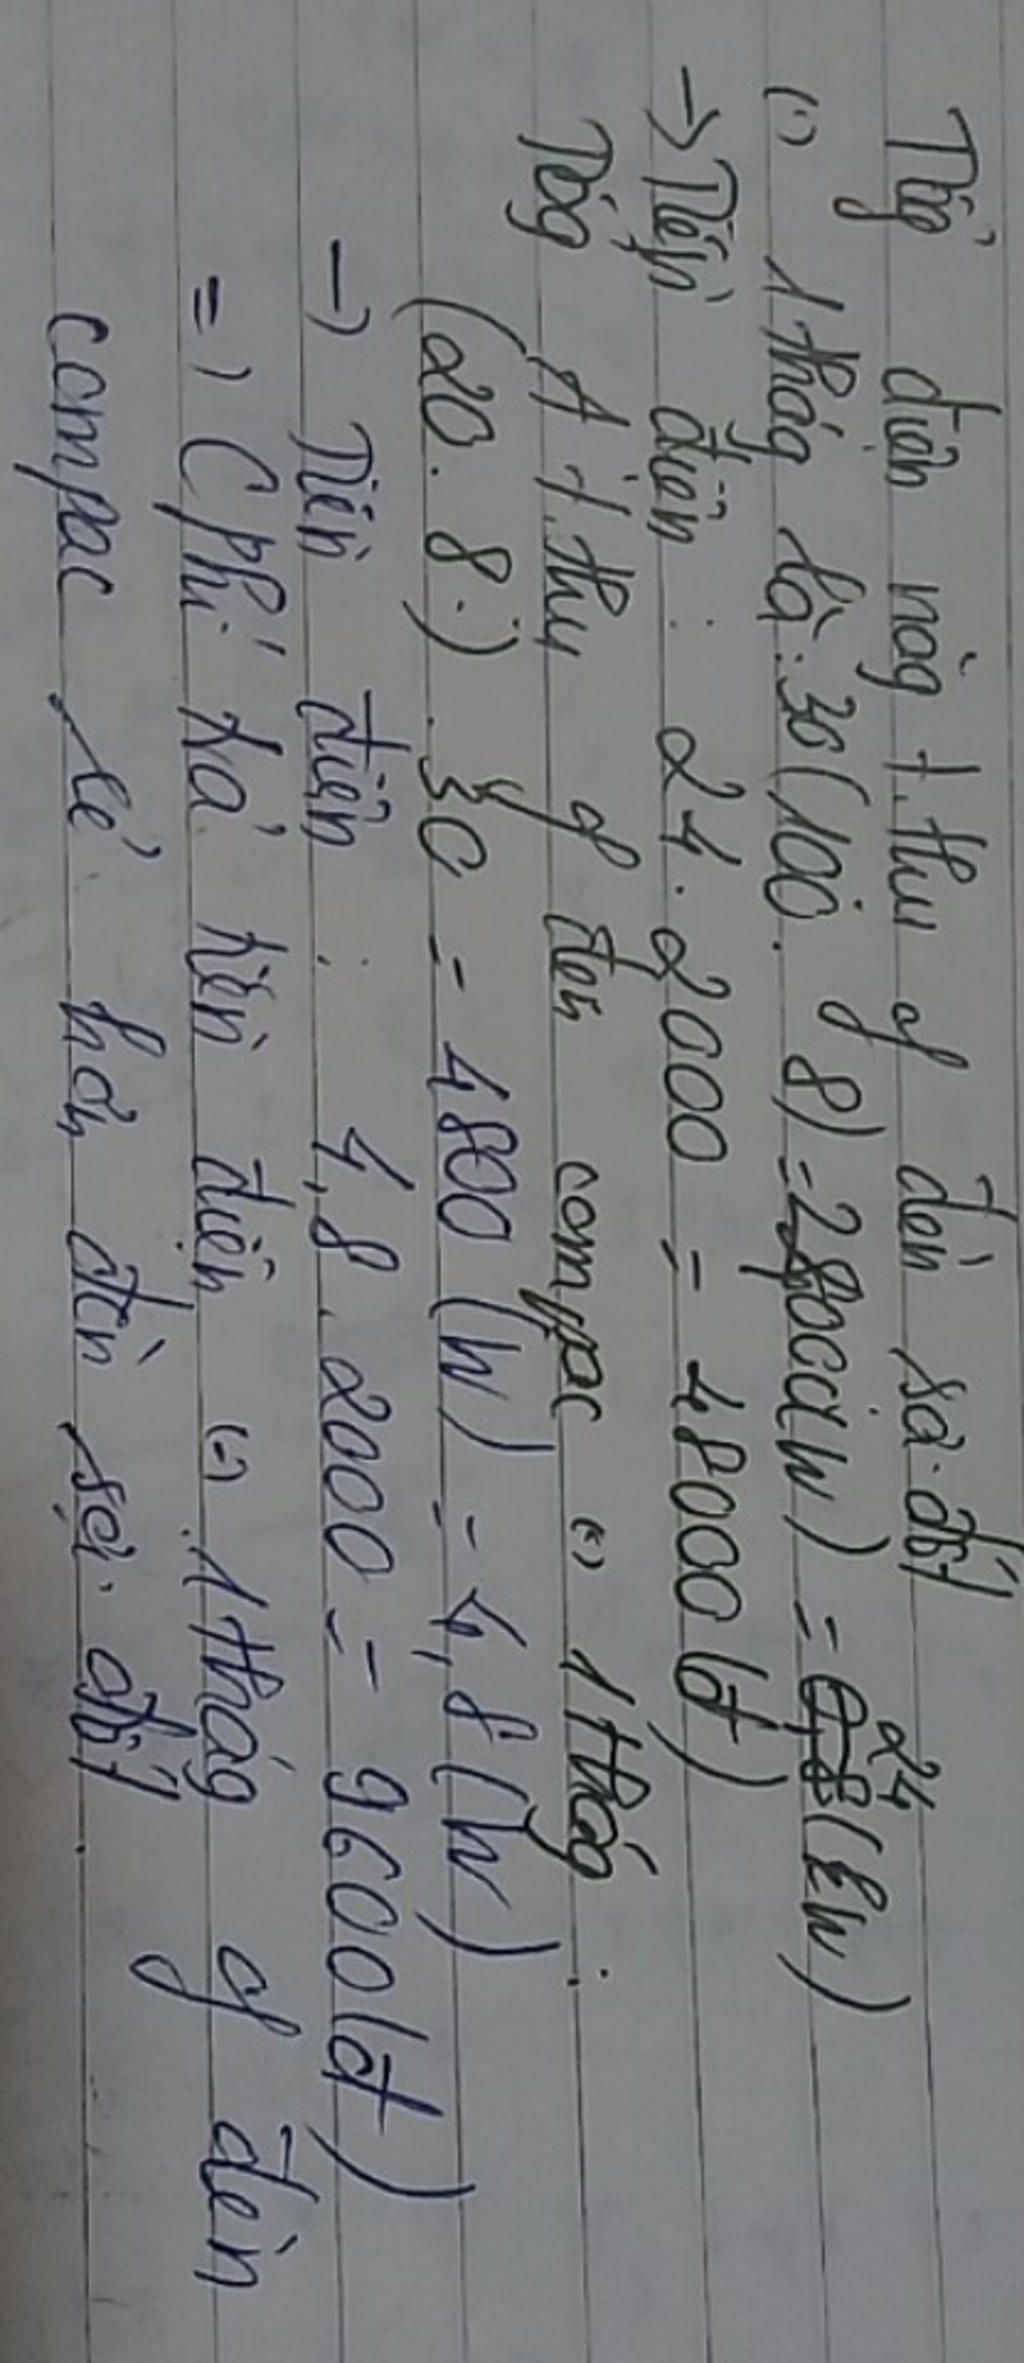 Tổg điện năg t.thụ of đèn sợi đốt
(-) 1 thág là: 30(100. 8) = 24000(W) = 24(kW)
→ Tiền điện : 24. 2000 = 48000(đ)
Tổg A t.thụ of đèn compac (-) 1 thág :
(20. 8.) . 30 = 4800 (W) = 4,8 (W)
→ Tiền điện : 4,8 . 2000 = 9600(đ)
=) Cphí trả tiền điện (-) 1 thág of đèn
compac rẻ hơn đèn sợi đốt.